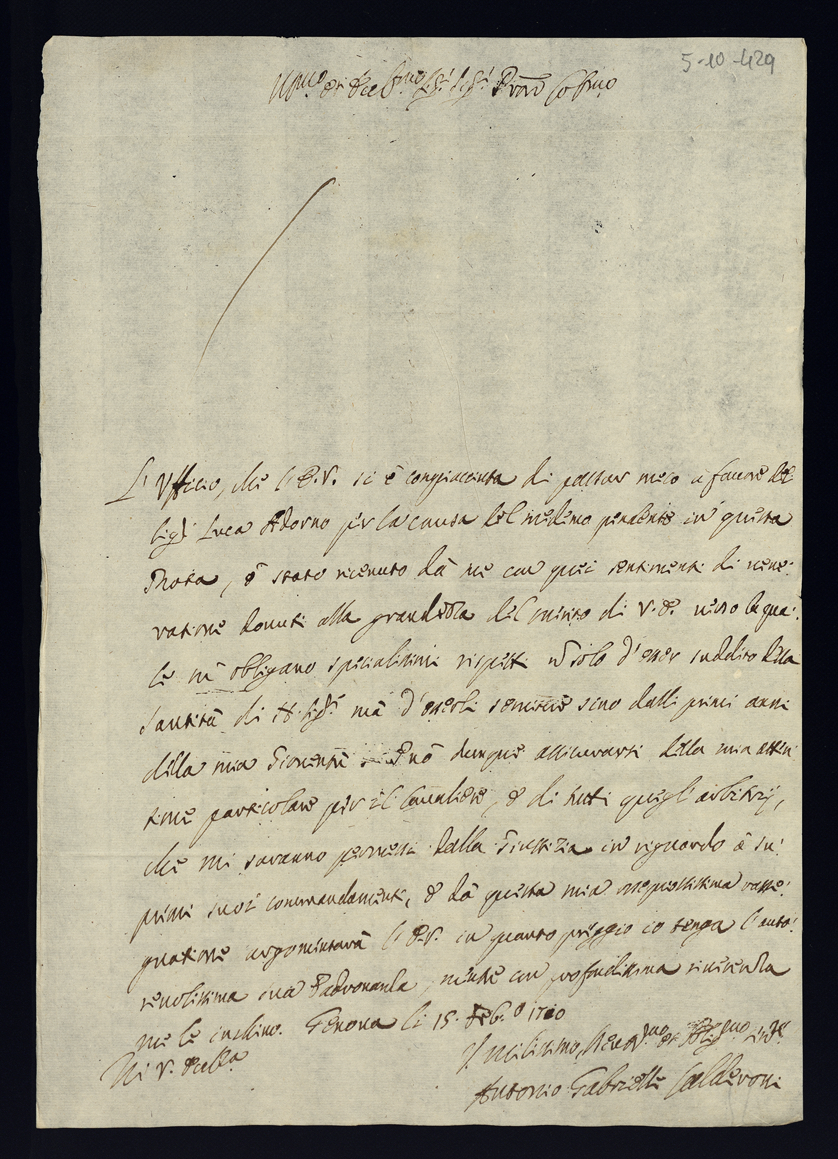 5-10-429
Ill.mo et Ecc.mo Sig.r Sig.r Pron Col.mo
L'Ufficio, che l'E.V. si è compiaciuta di passar meco à favore del
Sig.r Luca Adorno per la causa del medemo pendente in questa
Rota, è stato ricevuto dà me con quei sentimenti di vene:
ratione dovuti alla grandezza del merito di V.E. verso la qua:
le m'obligano specialissimi rispetti nō solo d'esser suddito della
Santità di N. Sig.re mà d'esserli servitore sino dalli primi anni
della mia Gioventù Può dunque assicurarsi della mia atten
tione particolare per il Cavaliere, e di tutti quegl'arbitrij,
che mi saranno permessi dalla Giustizia in riguardo à su:
premi suoi commandamenti, e dà questa mia ossequiosissima rasse:
gnatione argomentarà l'E.V. in quanto preggio io tenga l'auto:
revolissima sua Padronanza, mentre con profondissima riverenza
me le inchino. Genova li 15. Feb.o 1720
Di V. Ecc.za
Humilissimo, Devo.mo et Oblig.mo
Antonio Gabrielle Calderoni